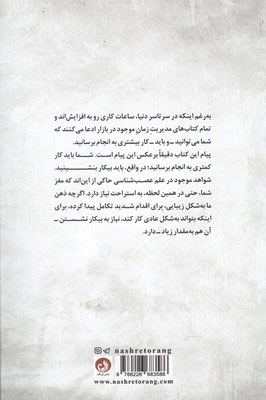 به‌رغم اینکه در سرتاسر دنیا، ساعات کاری رو به افزایش‌اند و
تمام کتاب‌های مدیریتِ زمانِ موجود در بازار ادعا می‌کنند که
شما می‌توانید ـ و باید ـ کار بیشتری به انجام برسانید.
پیام این کتاب دقیقاً برعکس این پیام است. شما باید کار
کمتری به انجام برسانید؛ در واقع، باید بیکار بنشینید.
شواهد موجود در علم عصب‌شناسی حاکی از این‌اند که مغز
شما، حتی در همین لحظه، به استراحت نیاز دارد. اگرچه ذهن
ما به‌شکل زیبایی، برای اقدام شدید تکامل پیدا کرده، برای
اینکه بتواند به‌شکل عادی کار کند، نیاز به بیکار نشستن ـ
آن هم به‌مقدار زیاد ـ دارد.
nashretorang
9 786226 683586
www.nashretorang.com